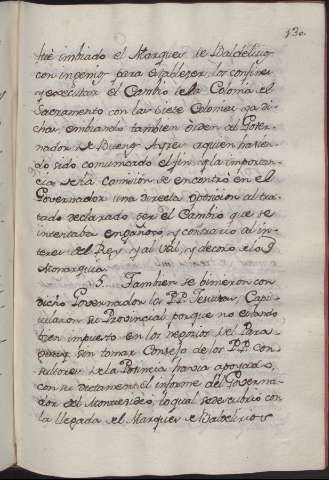 130.
fuè imbiado el Marques de Baldelirios
con ingenios para establezer los confines
y executar el Cambio de la Colonia el
Sacramento con las siete Colonias ya di-
chas, embiando tambien orden al Gover-
nador de Buenos Ayres aquien havien-
do sido comunicado el fin, y la importan-
cia de esta Comision se encontrò en el
Governador una directa oposicion al tra-
tado declarado ser el Cambio que se
intentaba engañoso, y contrario al in-
teres del Rey, y al Util, y decoro de la
Monarquia.
5. Tambien se unieron con
dicho Governador los PP. Jesuitas, Capi-
tularon su Provincial porque no estando
bien impuesto en los negocios del Para-
guay sin tomar Consejo de los PP. con-
sultores de la Provincia havia apoyado
con su dictamen el informe del Governa-
dor de Montevideo, lo qual se descubrio con
la llegada del Marques de Baldelirios